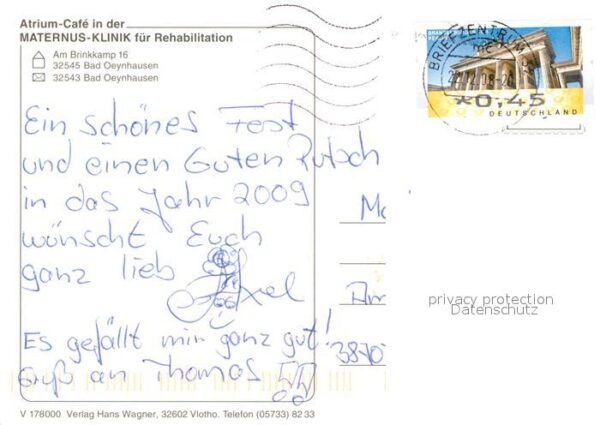 Atrium-Café in der
MATERNUS-KLINIK für Rehabilitation
Am Brinkkamp 16
32545 Bad Oeynhausen
32543 Bad Oeynhausen
BRIEFZENTRUM
*0,45
DEUTSCHLAND
Ein schönes Fest
und einen Guten Rutsch
in das Jahr 2009
wünscht Euch
ganz lieb Axel
Es gefällt mir ganz gut!
Gruß an Thomas
privacy protection
Datenschutz
V 178000 Verlag Hans Wagner, 32602 Vlotho. Telefon (05733) 82 33